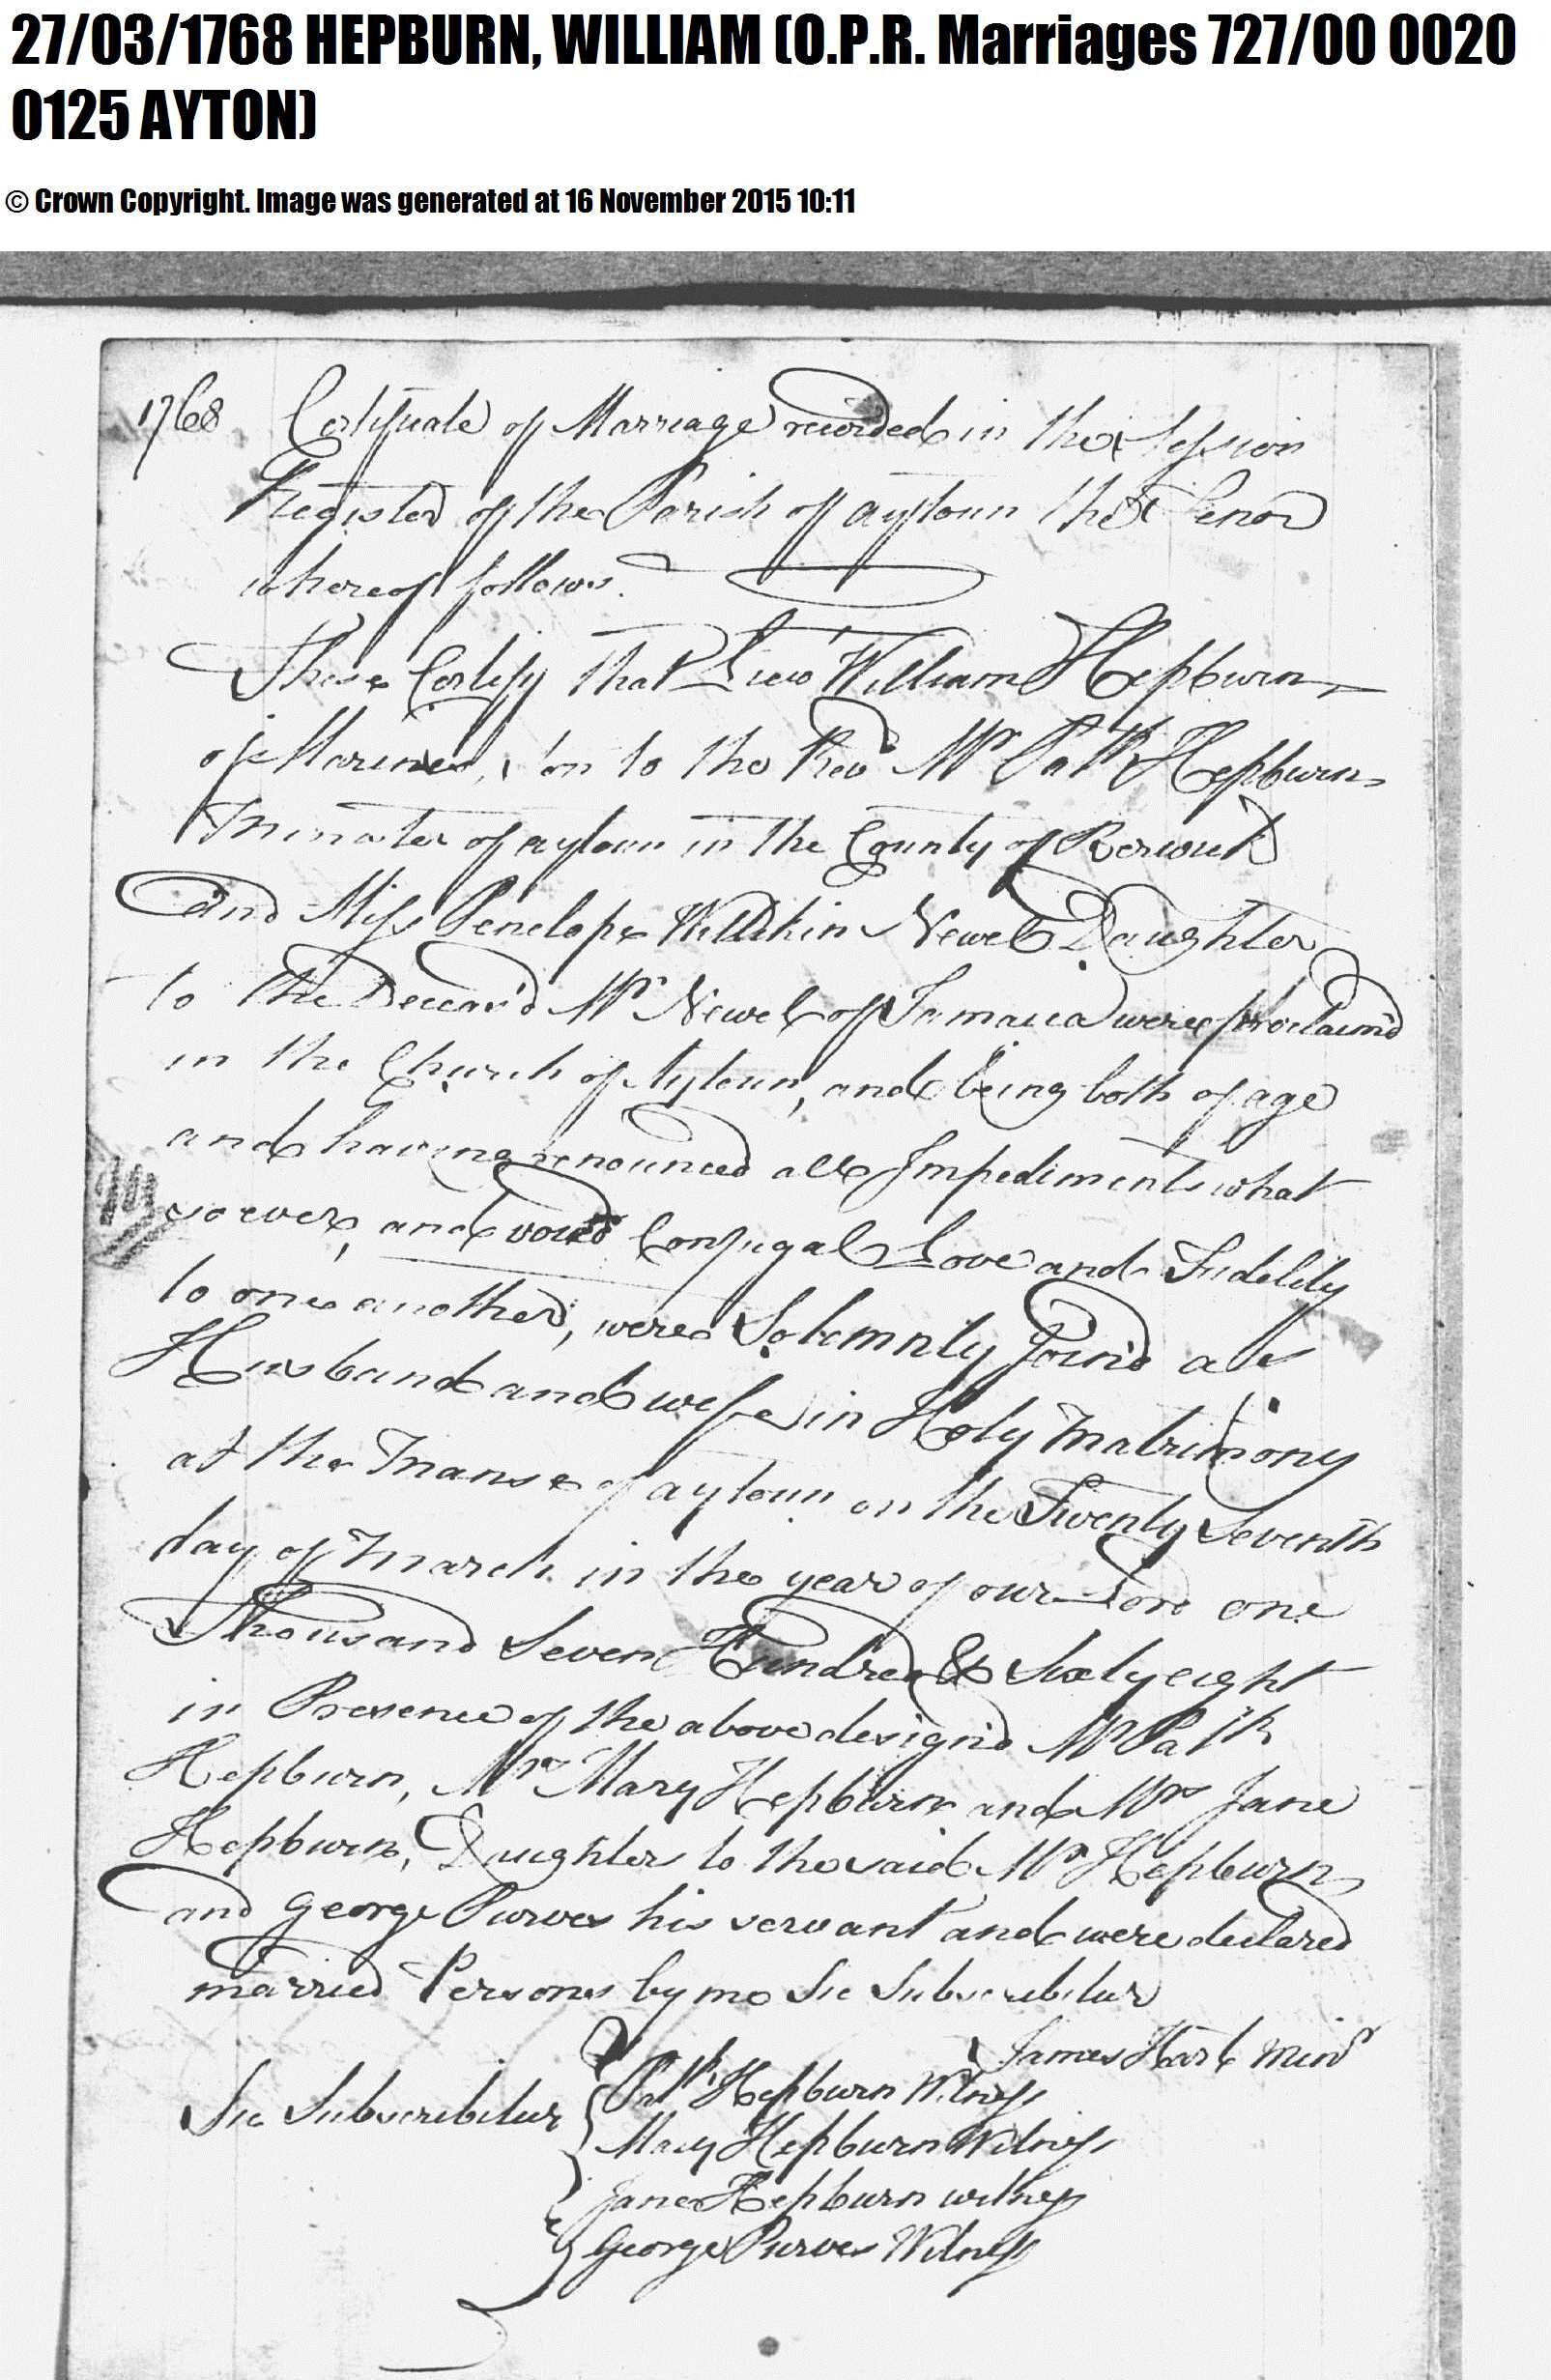 27/03/1768 HEPBURN, WILLIAM (O.P.R. Marriages 727/00 0020
0125 AYTON)
© Crown Copyright. Image was generated at 16 November 2015 10:11
1768 Certificate of Marriage recorded in the Session
Register of the Parish of aytoun the Tenor
whereof follows.
These Certify that Lieut William Hepburn
of Marines, Son to the Revd Mr Patk Hepburn
Minister of aytoun in the County of Berwick
and Miss Penelope Newel Daughter
to the Deceas'd Mr Newel of Jamaica were proclaimd
in the Church of Aytoun, and being both of age
and having renounced all Impediments what
soever, and vowed Conjugal Love and Fidelity
to one another, were Solemnly Joind as
Husband and wife in Holy Matrimony
at the Manse of aytoun on the Twenty Seventh
day of March in the year of our Lord one
Thousand Seven Hundred & Sixty eight
in Presence of the above design'd Mr Patk
Hepburn, Mrs Mary Hepburn and Mrs Jane
Hepburn, Daughters to the said Mr Hepburn
and George Purves his servant and were declared
married Persons by me Sic Subscribitur
James Hart Minr
Patk Hepburn Witness
Sic Subscribitur
Mary Hepburn Witness
Jane Hepburn witness
George Purves Witness